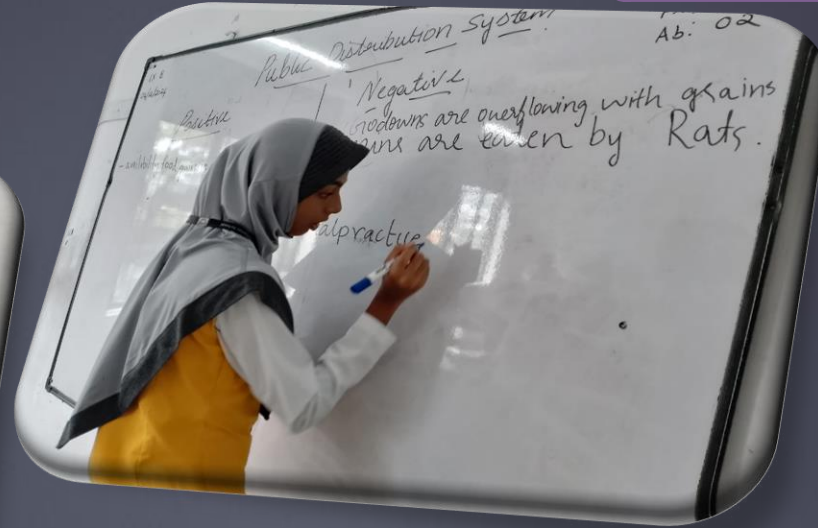 Public Distribution System
Ab: 02
Positive
Negative
Godowns are overflowing with grains
are eaten by Rats.
alpractice